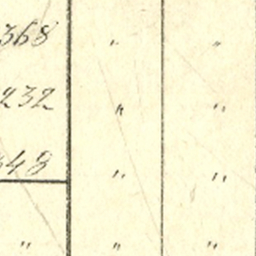 368 " "
232 " "
48 " "
" " "